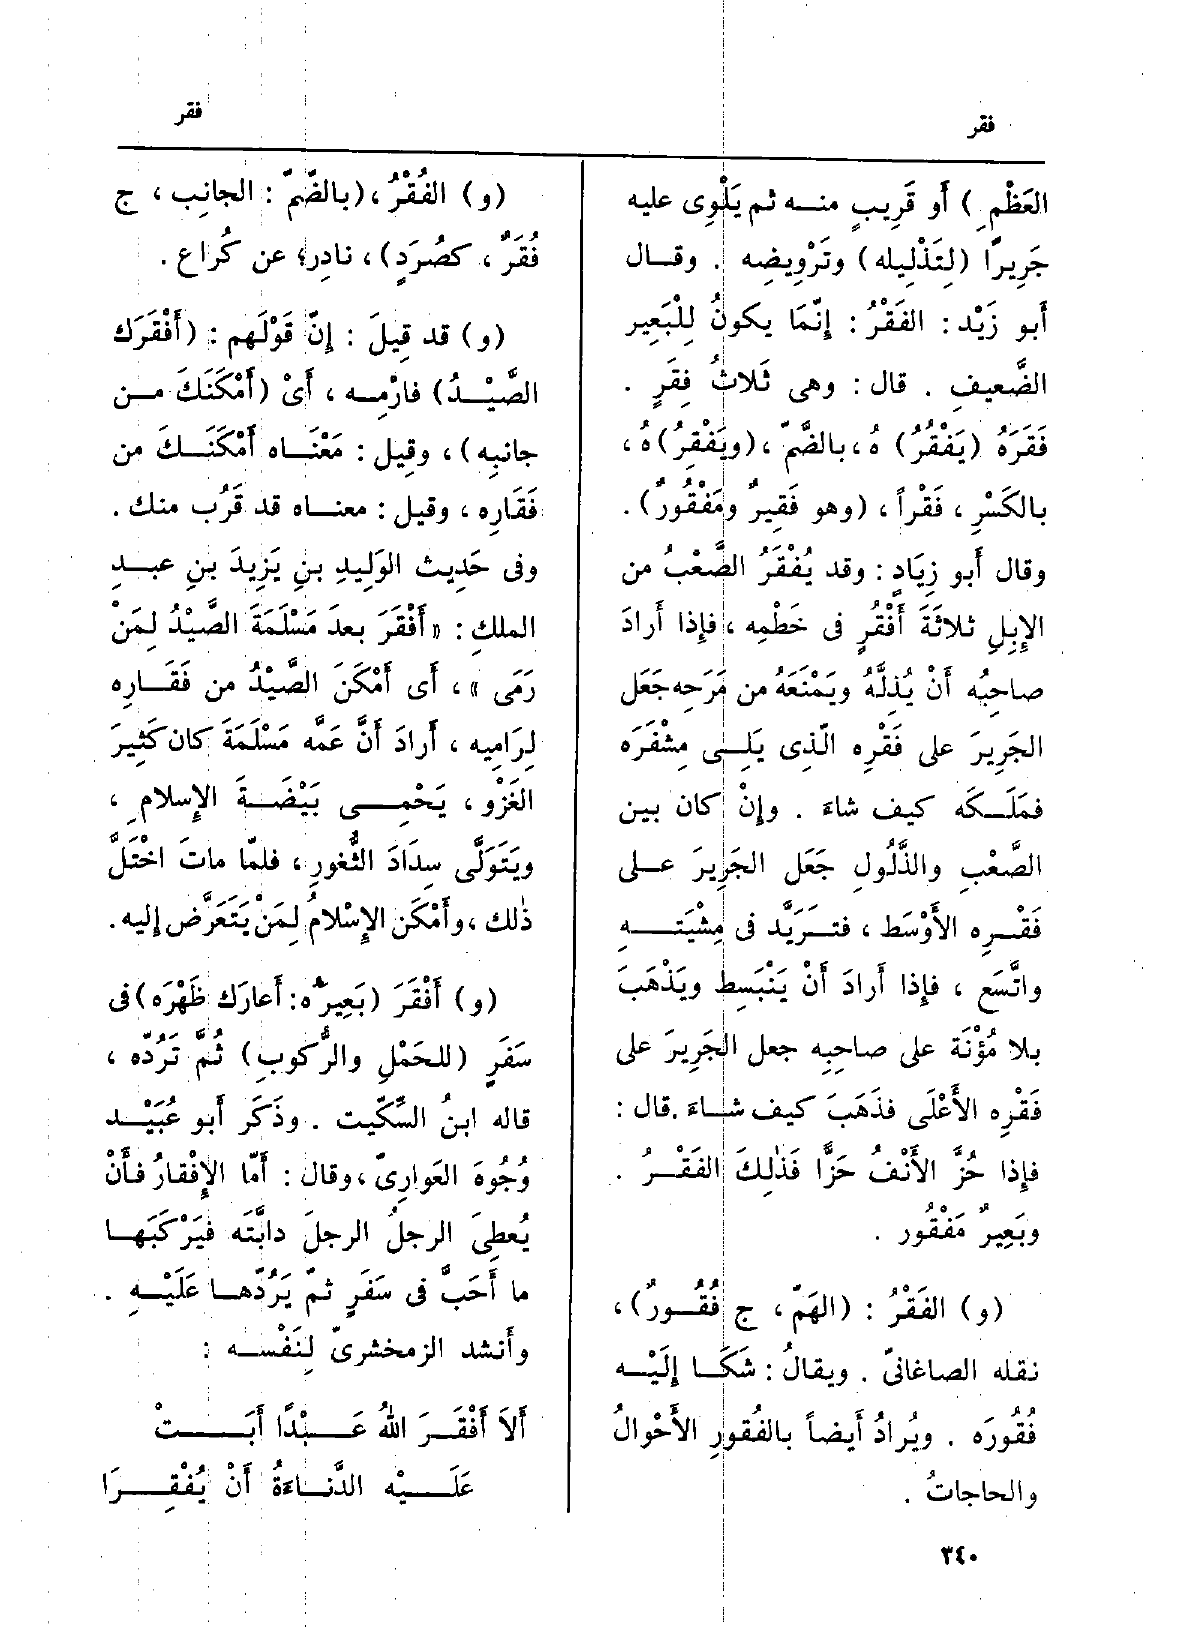 فقر
فقر
العَظْمِ) أَو قَرِيبٍ منـــه ثم يَلْوِى عليه
جَرِيرًا (لِتَذْلِيله) وتَرْوِيضِه . وقــال
أَبو زَيْد : الفَقْرُ : إِنَّمَا يكونُ لِلْبَعِير
الضَّعيفِ . قال : وهى ثَلاثُ فِقَرٍ .
فَقَرَهُ (يَفْقُرُ) هُ ، بالضَّمّ ، (ويَفْقِرُ) هُ ،
بالكَسْرِ ، فَقْراً ، (وهو فَقِيرٌ ومَفْقُورٌ) .
وقال أَبو زِيَادٍ : وقد يُفْقَرُ الصَّعْبُ من
الإِبِلِ ثلاثَةَ أَفْقُرٍ فى خَطْمِه ، فإِذا أَرادَ
صاحِبُه أَنْ يُذِلَّهُ ويَمْنَعَهُ من مَرَحِه جَعَل
الجَرِيرَ على فَقْرِه الَّذِى يَلِــى مِشْفَرَه
فمَلَــكَه كيف شاءَ . وإِنْ كان بين
الصَّعْبِ والذَّلُولِ جَعَل الجَرِيرَ علــى
فَقْــرِه الأَوْسَط ، فتــزَيَّد فى مِشْيَتــه
واتَّسَع ، فإِذا أَرادَ أَنْ يَنْبَسِط ويَذْهَبَ
بلا مُؤْنَة على صاحِبِه جعل الجَرِيرَ على
فَقْرِه الأَعْلَى فذَهَبَ كيف شــاءَ .قال :
فإِذا حُزَّ الأَنْفُ حَزًّا فَذٰلِكَ الفَقْــرُ .
وبَعِيرٌ مَفْقُور .
(و) الفَقْرُ : (الهَمّ ، ج فُقُــورٌ) ،
نقله الصاغانىّ . ويقالُ : شَكَــا إِلَيْــه
فُقُورَه . ويُرادُ أَيضاً بالفُقُورِ الأَحْوالُ
والحاجاتُ .
(و) الفُقْرُ ، (بالضَّمّ : الجانِب ، ج
فُقَرٌ ، كصُرَدٍ) ، نادِر؛ عن كُراع .
(و) قد قِيلَ : إِنّ قَوْلَهم : (أَفْقَرَك
الصَّيْــدُ) فارْمِــه ، أَىْ (أَمْكَنَكَ مــن
جانبِه) ، وقِيل : مَعْنَــاه أَمْكَنَــكَ من
فَقَارِه ، وقيل : معنــاه قد قَرُب منك .
وفى حَدِيث الوَلِيدِ بنِ يَزِيدَ بنِ عبــدِ
الملك : « أَفْقَرَ بعدَ مَسْلَمَةَ الصَّيْدُ لِمَنْ
رَمَى » ، أَى أَمْكَنَ الصَّيْدُ من فَقَــارِه
لِرَامِيه ، أَرادَ أَنَّ عَمَّه مَسْلَمَةَ كان كَثِيرَ
الغَزْوِ ، يَحْمِــى بَيْضَــةَ الإِسلامِ ،
ويَتَوَلَّى سِدَادَ الثُّغورِ ، فلمّا ماتَ اخْتَلَّ
ذٰلك ، وأَمْكَن الإِسْلامُ لِمَنْ يَتَعَرَّض إِليه .
(و) أَفْقَرَ (بَعِيرَه : أَعارَك ظَهْرَه) فى
سَفَرٍ (للحَمْلِ والرُّكوبِ) ثُمَّ تَرُدّه ،
قاله ابنُ السِّكِّيت . وذَكَر أَبو عُبَيْــد
وُجُوهَ العَوارِىّ ، وقال : أَمّا الإِفْقارُ فأَنْ
يُعطِىَ الرجلُ الرجلَ دابَّتَه فيَرْكَبَهــا
ما أَحَبَّ فى سَفَرٍ ثمّ يَرُدّهــا عَلَيْــهِ .
وأَنشد الزمخشرىّ لِنَفْســه :
أَلاَ أَفْقَــرَ اللهُ عَــبْدًا أَبَــــتْ
عَلَــــيْه الدَّنــاءَةُ أَنْ يُفْقِــــرَا
٣٤٠